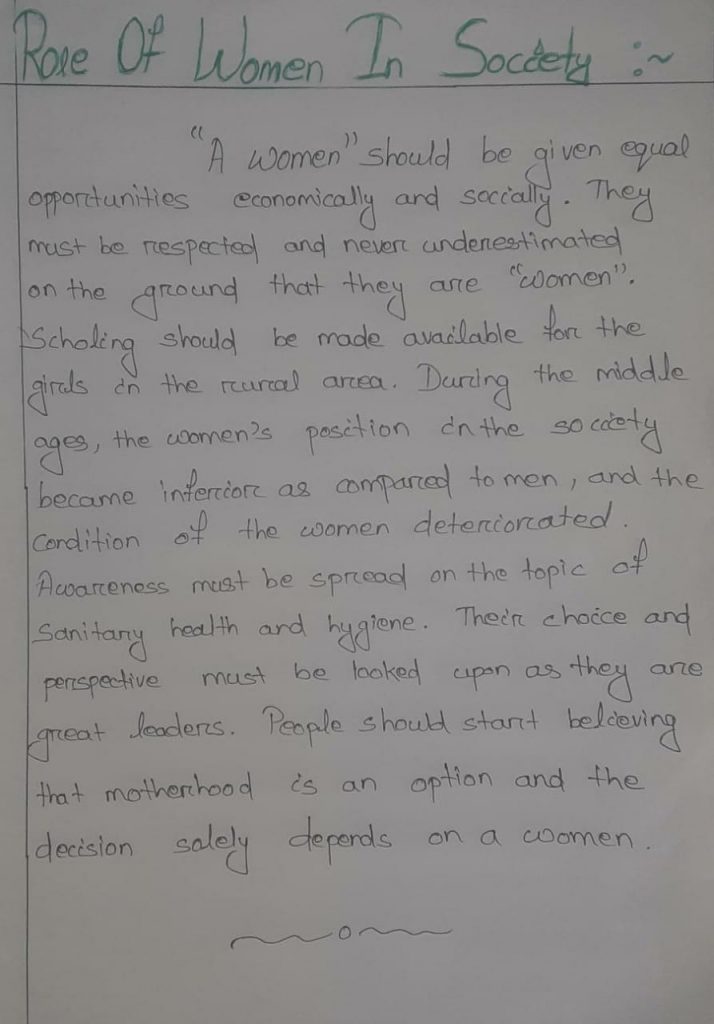 Role Of Women In Society :~
"A women" should be given equal
opportunities economically and socially. They
must be respected and never underestimated
on the ground that they are "women".
Scholing should be made available for the
girals in the rural area. During the middle
ages, the women's position in the society
became inferior as compared to men, and the
condition of the women deteriorated.
Awareness must be spread on the topic of
Sanitary health and hygiene. Their choice and
perspective must be looked upon as they are
great leaders. People should start believing
that motherhood is an option and the
decision solely depends on a women.